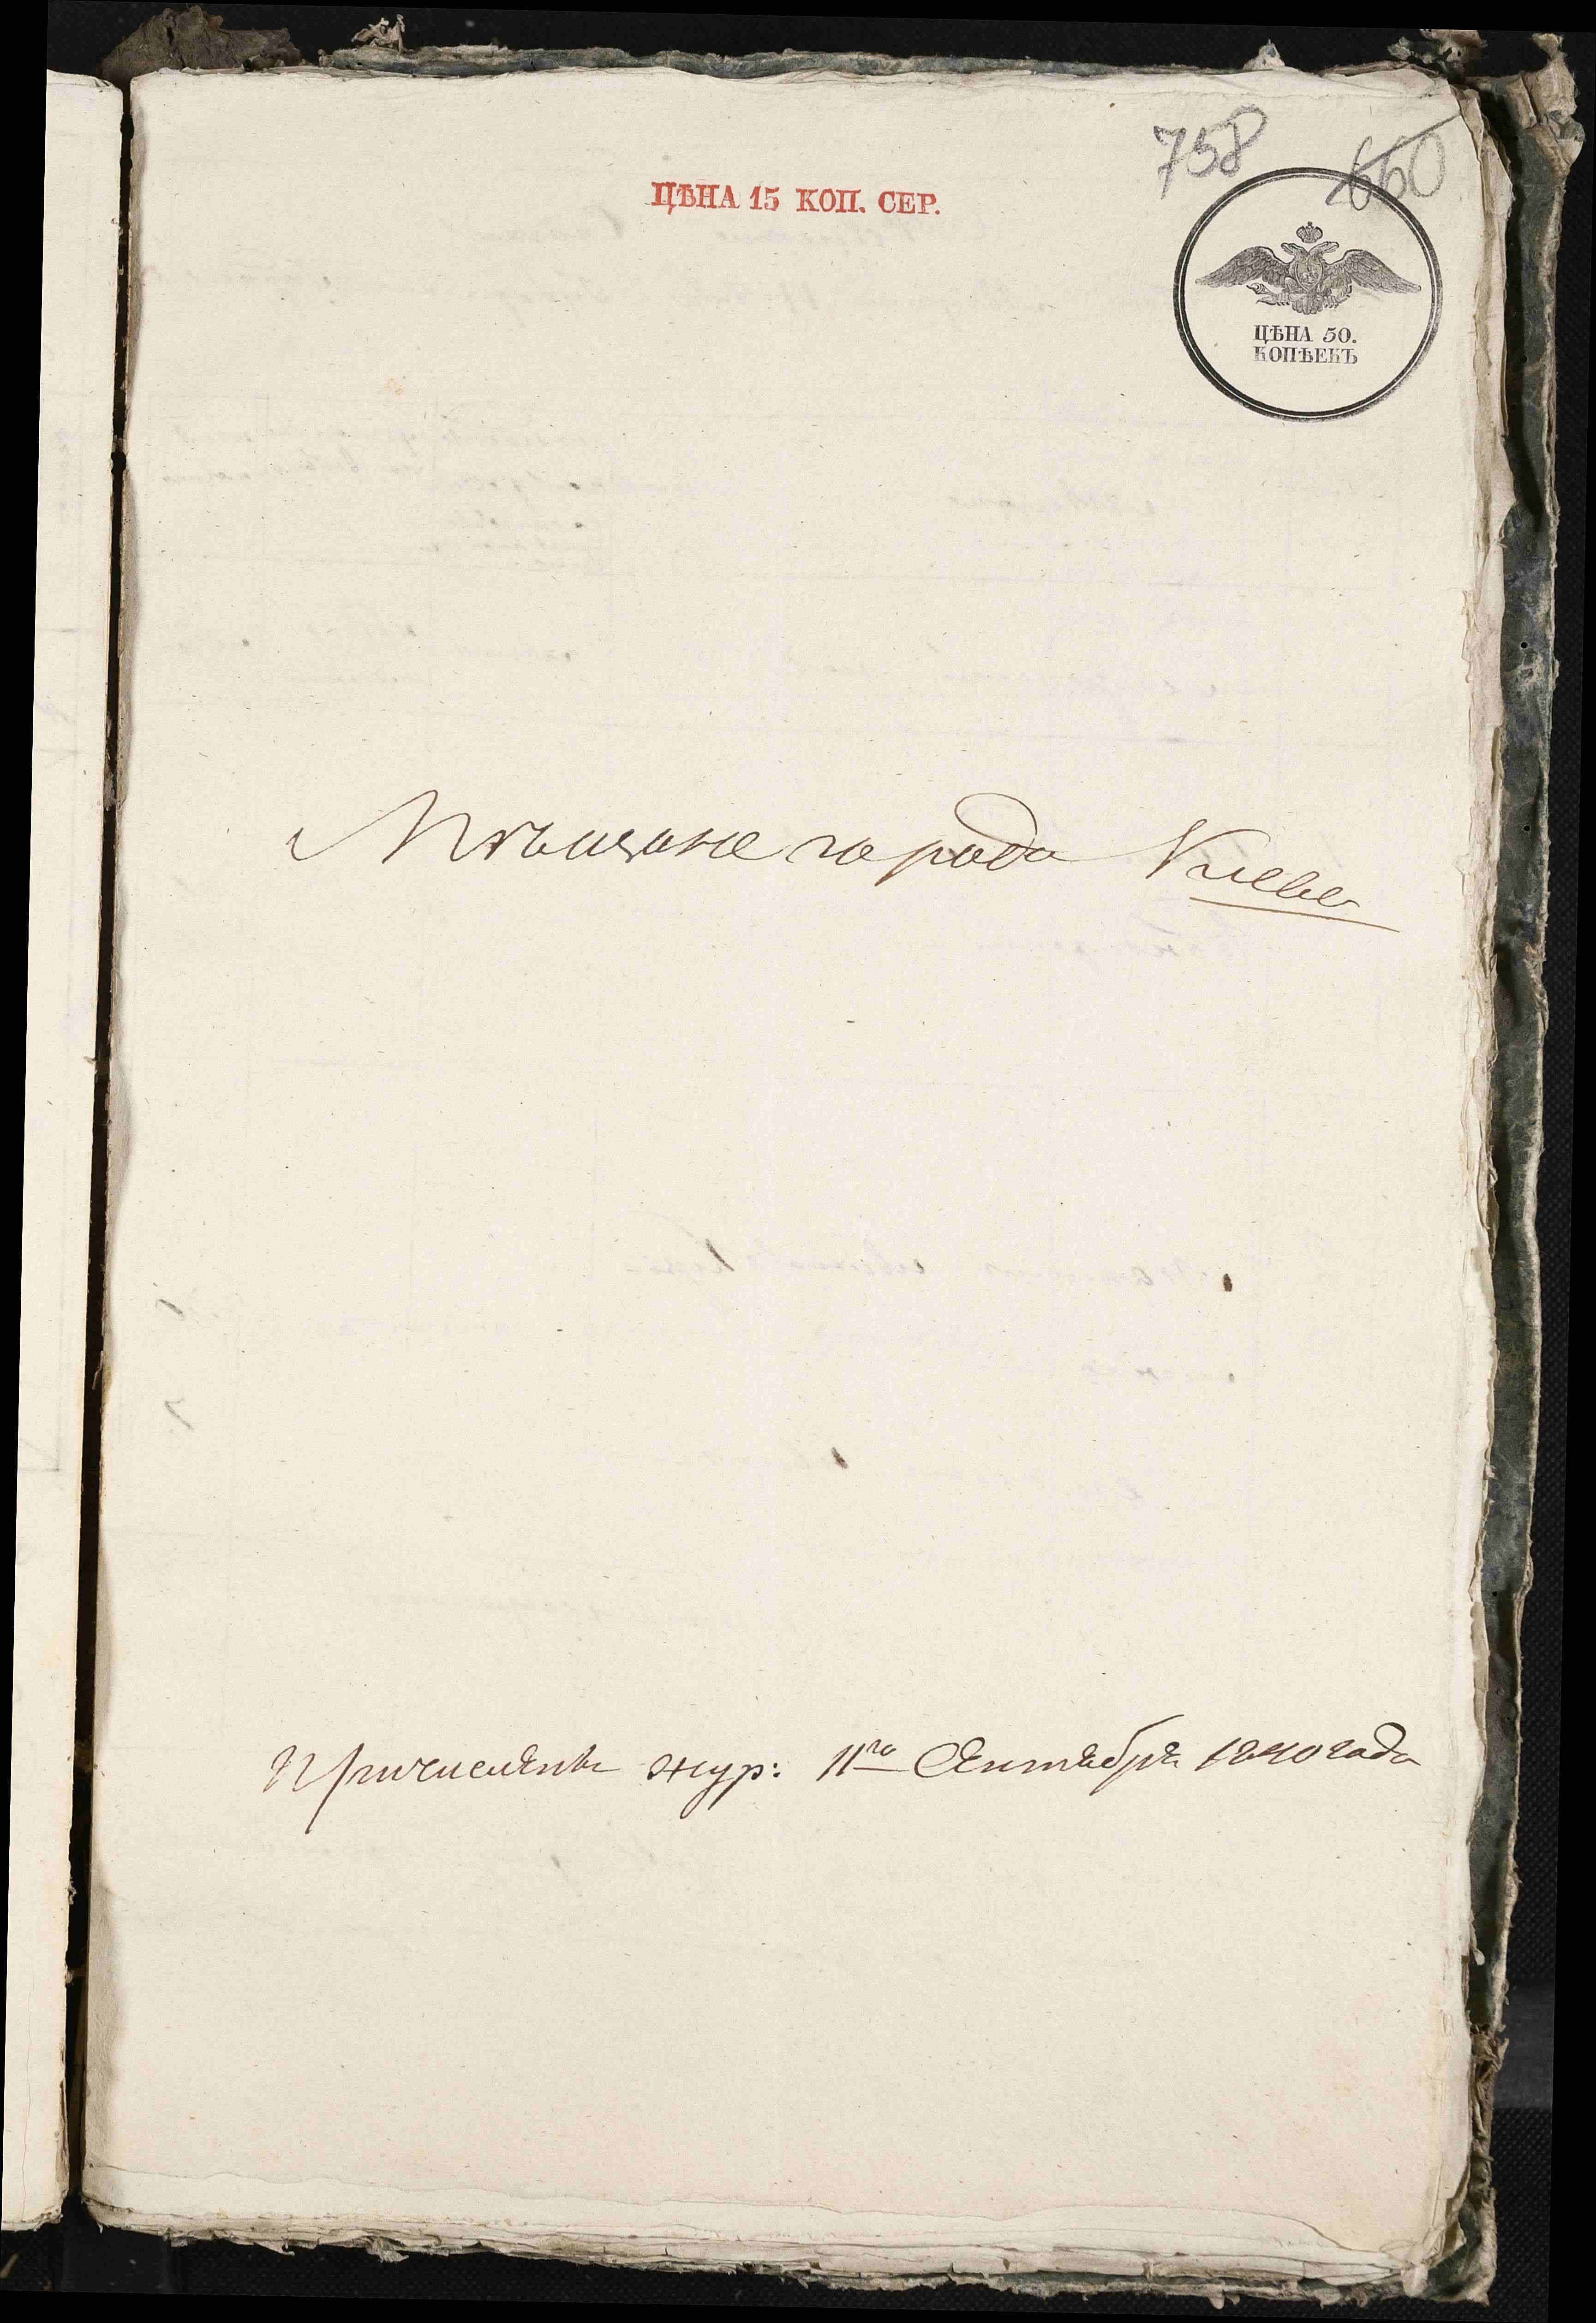 758 660
ЦѢНА 15 КОП. СЕР.
ЦѢНА 50.
КОПѢЕКЪ
Мѣщане города Киева
Причислены жур: 11го Сентября 1840 года